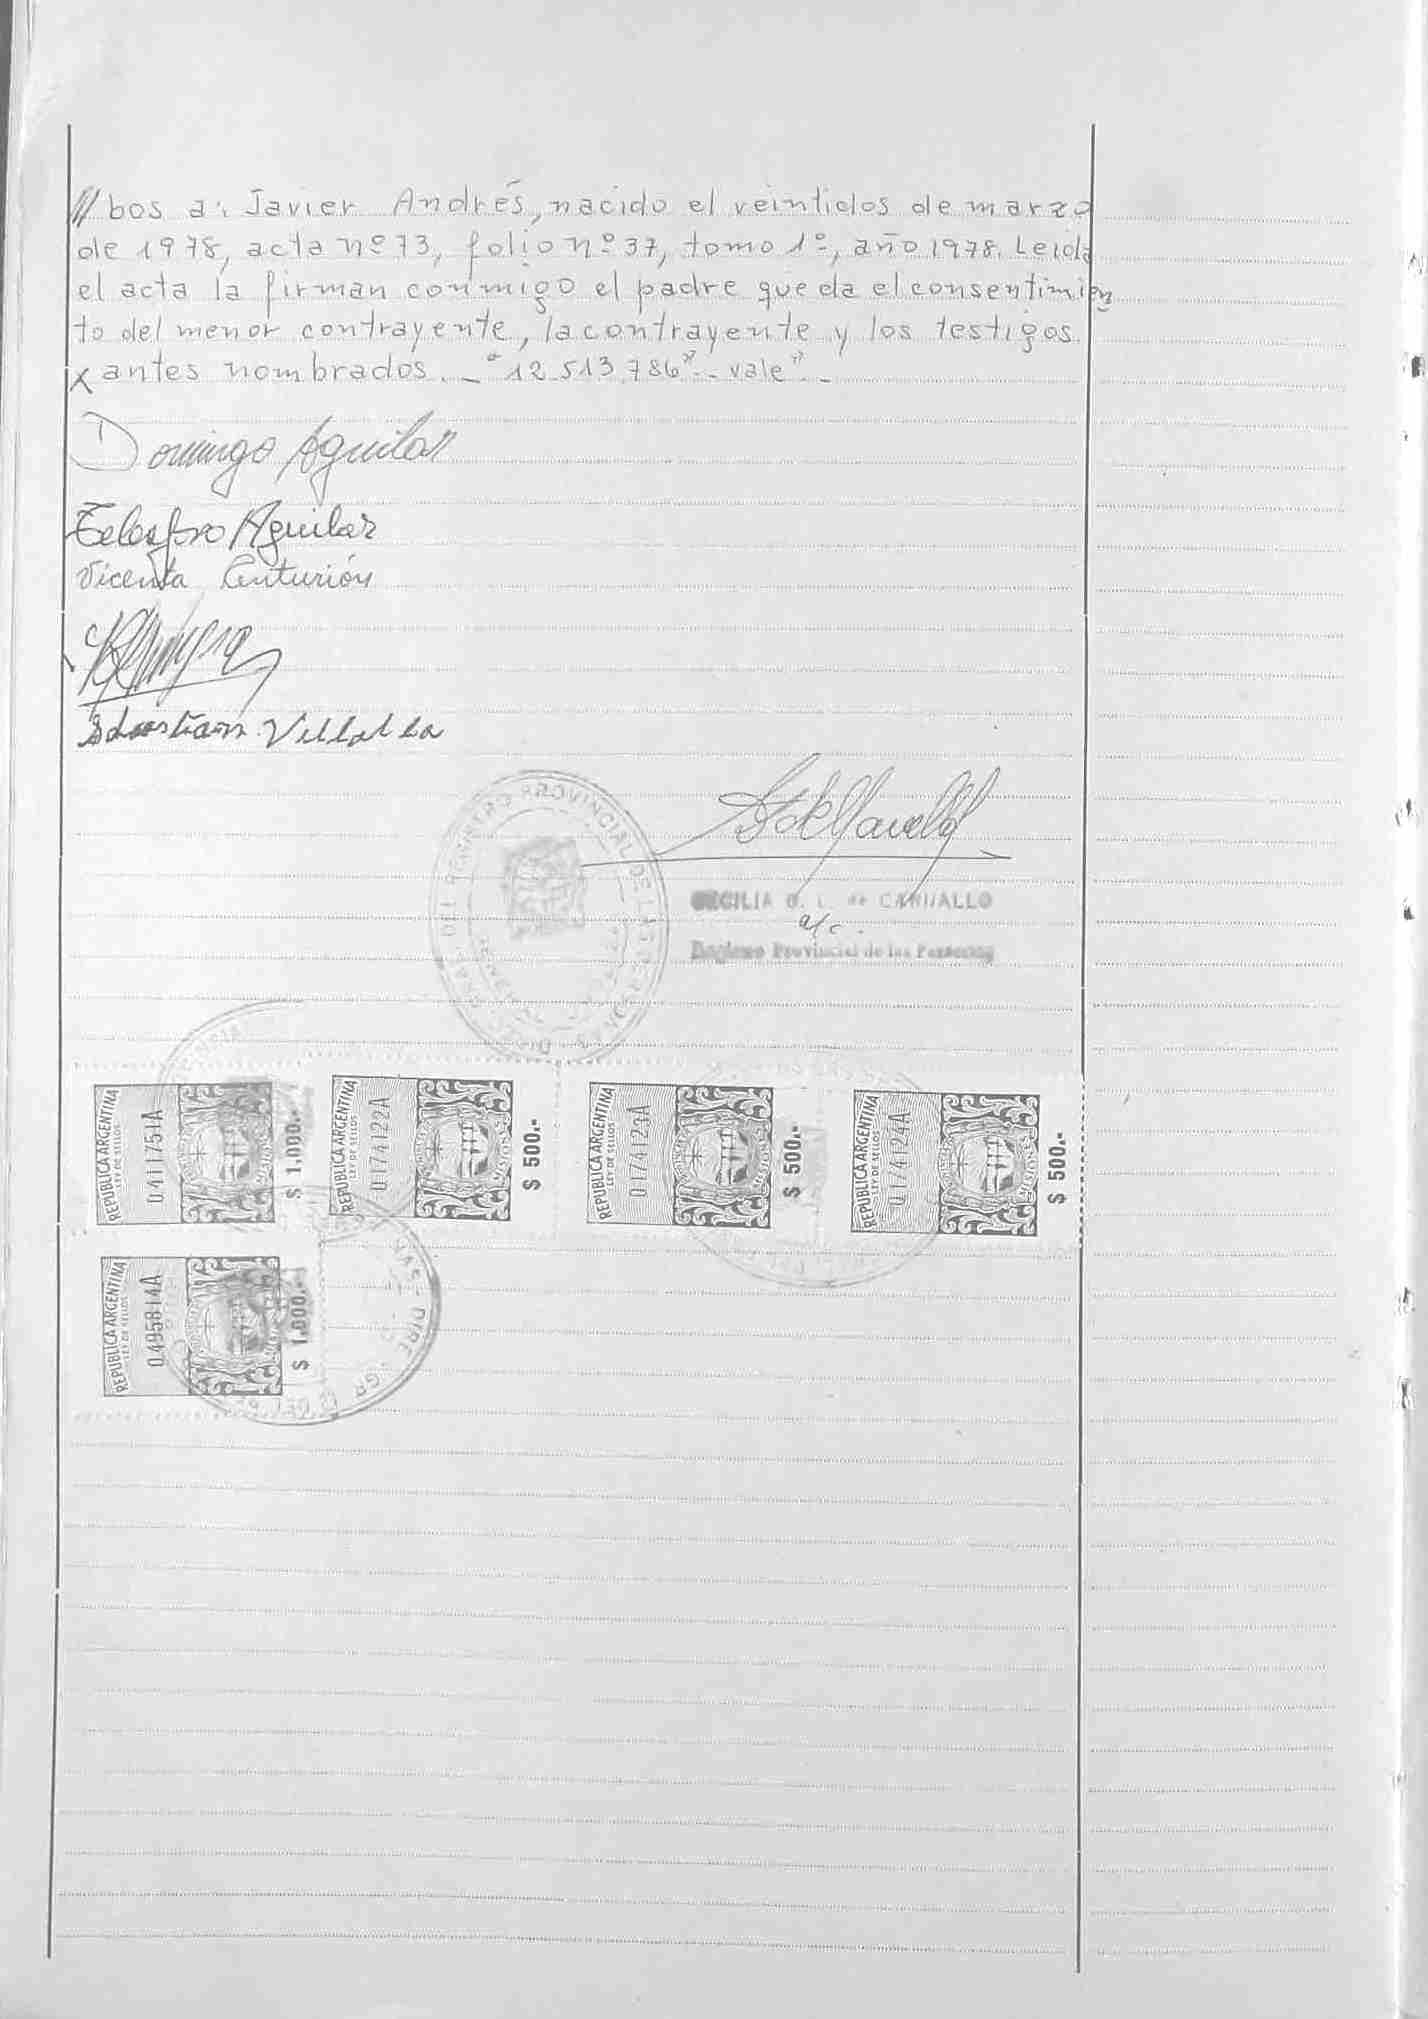 //bos a: Javier Andrés, nacido el veintidos de marzo
de 1978, acta nº 73, folio nº 37, tomo 1º, año 1978. Leida
el acta la firman conmigo el padre que da el consentimien
to del menor contrayente, la contrayente y los testigos
antes nombrados. - "12.513.786" - vale" -
Domingo Aguilar
Telesforo Aguilar
Vicenta Centurión
Sebastian Villalba
CECILIA G. L. de CARVALLO
a/c.
Registro Provincial de las Personas
DEL REGISTRO PROVINCIAL DE LAS PERSONAS
REPUBLICA ARGENTINA
LEY DE SELLOS
0411751A
$ 1.000.-
REPUBLICA ARGENTINA
LEY DE SELLOS
0174122A
$ 500.-
REPUBLICA ARGENTINA
LEY DE SELLOS
$ 500.-
REPUBLICA ARGENTINA
LEY DE SELLOS
0174124A
$ 500.-
REPUBLICA ARGENTINA
LEY DE SELLOS
0495814A
$ 1.000.-